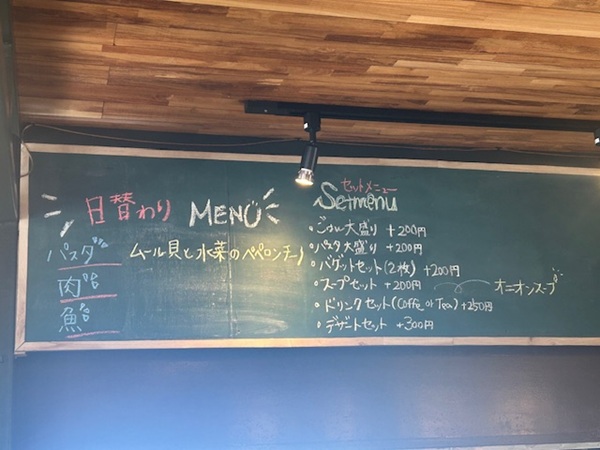 日替わり MENU
パスタ ムール貝と水菜のペペロンチーノ
肉
魚
セットメニュー
Setmenu
ごはん大盛り +200円
パスタ大盛り +200円
バゲットセット(2枚) +200円
スープセット +200円 オニオンスープ
ドリンクセット(Coffe or Tea) +250円
デザートセット +300円